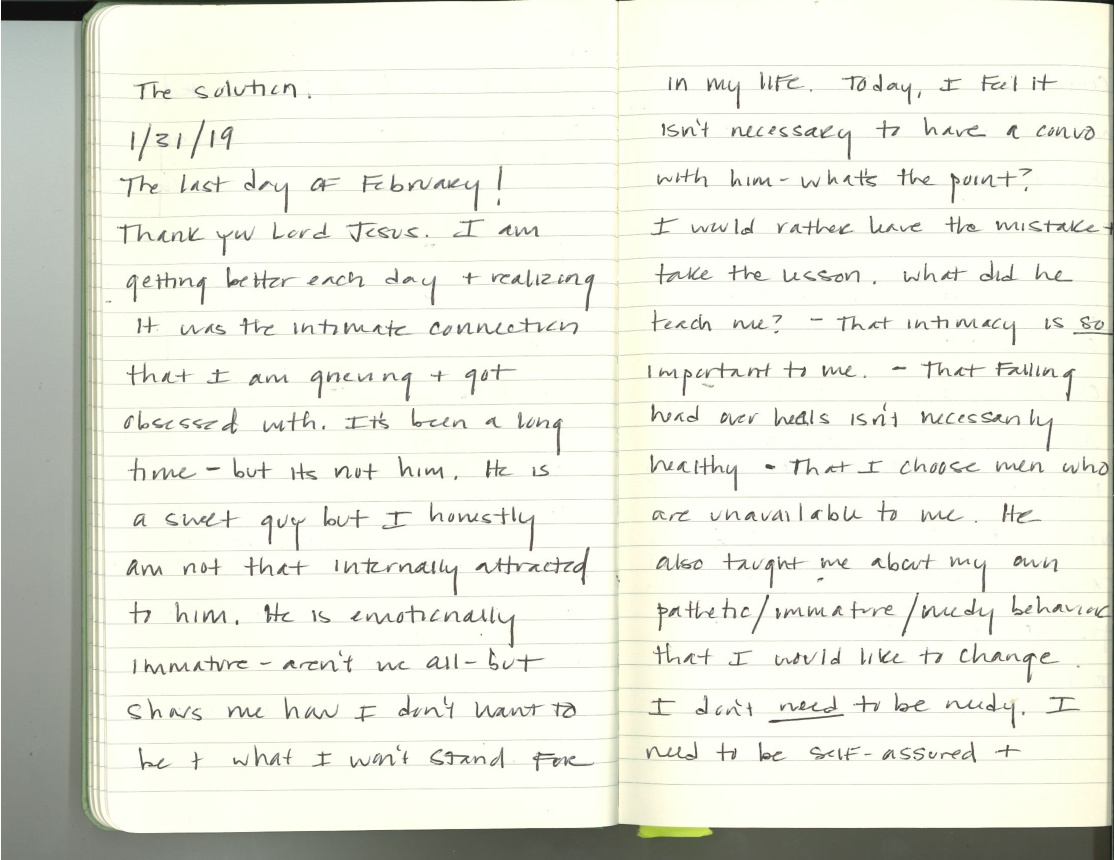 The solution.
1/31/19
The last day of February!
Thank you Lord Jesus. I am
getting better each day + realizing
it was the intimate connection
that I am grieving + got
obsessed with. It's been a long
time - but its not him. He is
a sweet guy but I honestly
am not that internally attracted
to him. He is emotionally
immature - aren't we all - but
shows me how I don't want to
be + what I won't stand for
in my life. Today, I feel it
isn't necessary to have a convo
with him - what's the point?
I would rather leave the mistake +
take the lesson. What did he
teach me? - That intimacy is so
important to me. - That falling
head over heals isn't necessarily
healthy - That I choose men who
are unavailable to me. He
also taught me about my own
pathetic/immature/needy behavior
that I would like to change.
I don't need to be needy. I
need to be self-assured +